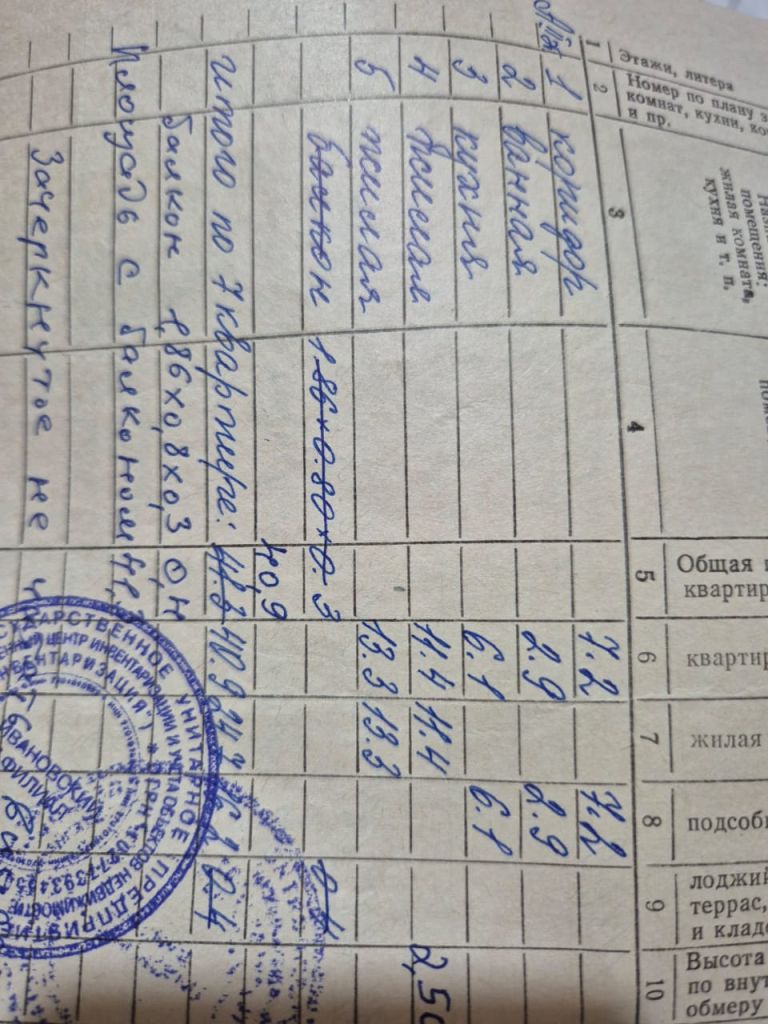 Этажи, литера
Номер по плану
комнат, кухни,
и пр.
помещения:
жилая комната,
кухня и т. п.
Общая
квартир
квартир
жилая
подсоб
лоджий
террас,
и кладо
Высота
по внут
обмеру
1 2 3 4 5 6 7 8 9 10
1 коридор 7.2 7.2
2 ванная 2.9 2.9
3 кухня 6.1 6.1
4 жилая 11.4 11.4 2,50
5 жилая 13.3 13.3
балкон 1.86х0.80х0.3
40,9
итого по 7 квартире: 41.3 40.9 24.7 16.2 0.4
балкон 1,86х0,8х0,3 0,4
Площадь с балконом
Зачеркнутое не
ГОСУДАРСТВЕННОЕ УНИТАРНОЕ ПРЕДПРИЯТИЕ
ЦЕНТР ИНВЕНТАРИЗАЦИИ И УЧЕТА ОБЪЕКТОВ НЕДВИЖИМОСТИ
ИВАНОВСКИЙ
ФИЛИАЛ